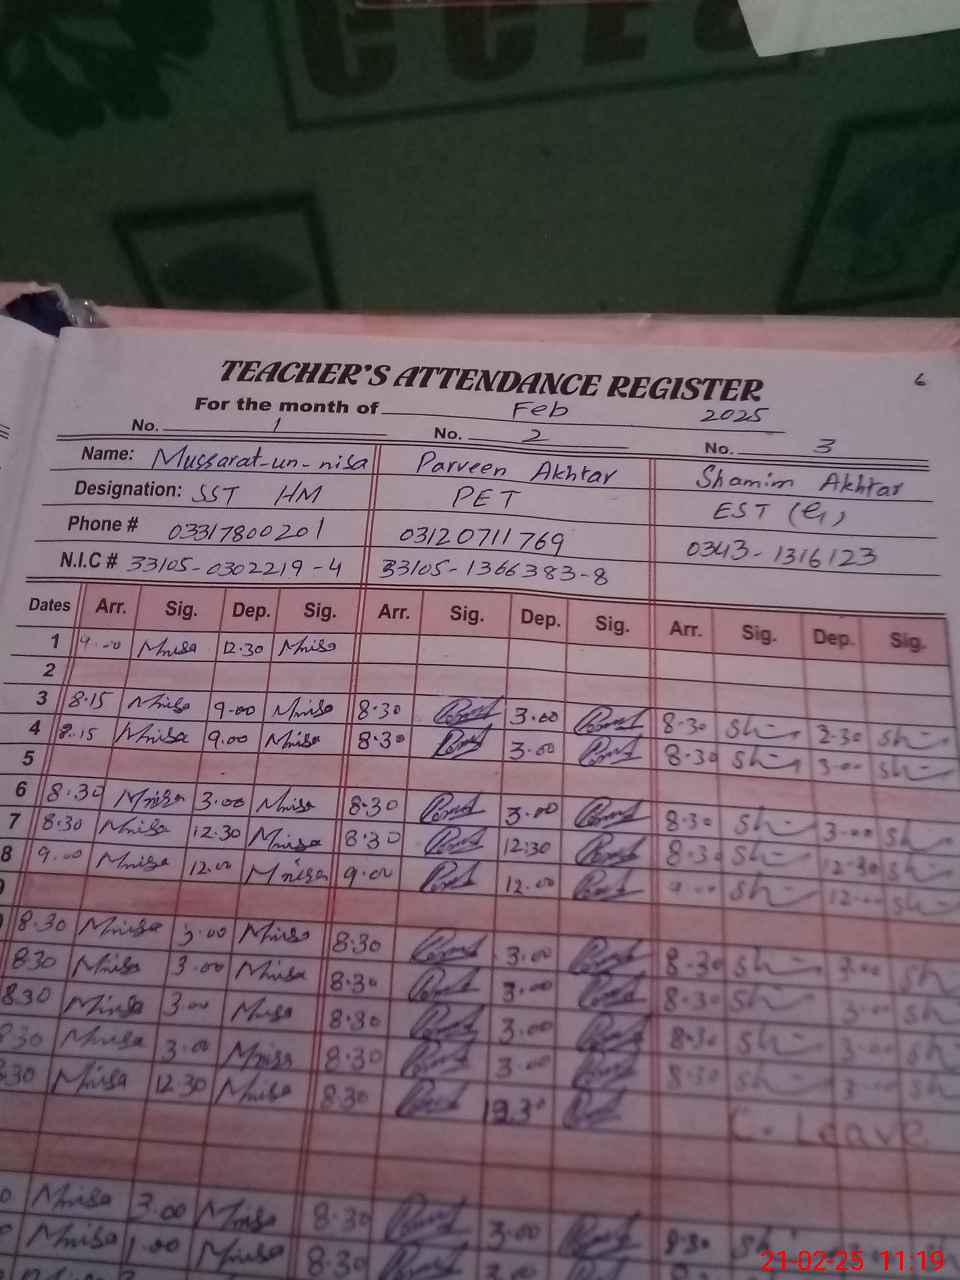 6
TEACHER'S ATTENDANCE REGISTER
For the month of Feb 2025
No. 1 No. 2 No. 3
Name: Mussarat-un-nisa Parveen Akhtar Shamim Akhtar
Designation: SST HM PET EST (G)
Phone # 03317800201 03120711769 0343-1316123
N.I.C # 33105-0302219-4 33105-1366383-8
Dates Arr. Sig. Dep. Sig. Arr. Sig. Dep. Sig. Arr. Sig. Dep. Sig.
1 9.00 Mnisa 12.30 Mnisa
2
3 8.15 Mnisa 9.00 Mnisa 8.30 3.00 8.30 Sh 2.30 Sh
4 8.15 Mnisa 9.00 Mnisa 8.30 3.00 8.30 Sh 3.00 Sh
5
6 8.30 Mnisa 3.00 Mnisa 8.30 3.00 8.30 Sh 3.00 Sh
7 8.30 Mnisa 12.30 Mnisa 8.30 12.30 8.30 Sh 12.30 Sh
8 9.00 Mnisa 12.00 Mnisa 9.00 12.00 9.00 Sh 12.00 Sh
8.30 Mnisa 3.00 Mnisa 8.30 3.00 8.30 Sh 3.00 Sh
8.30 Mnisa 3.00 Mnisa 8.30 3.00 8.30 Sh 3.00 Sh
8.30 Mnisa 3.00 Mnisa 8.30 3.00 8.30 Sh 3.00 Sh
8.30 Mnisa 3.00 Mnisa 8.30 3.00 8.30 Sh 3.00 Sh
8.30 Mnisa 12.30 Mnisa 8.30 12.30 C. Leave
Mnisa 3.00 Mnisa 8.30 3.00 8.30 Sh
Mnisa 1.00 Mnisa 8.30 3.00 8.30
21-02-25 11:19